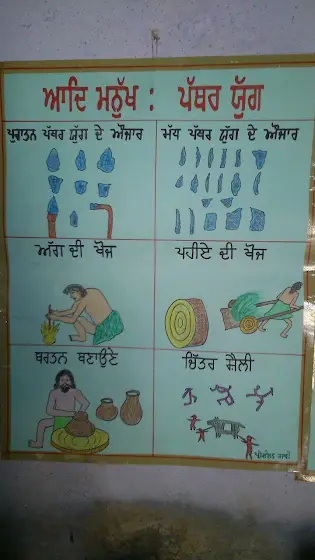 ਆਦਿ ਮਨੁੱਖ : ਪੱਥਰ ਯੁੱਗ
ਪੁਰਾਤਨ ਪੱਥਰ ਯੁੱਗ ਦੇ ਔਜ਼ਾਰ
ਮੱਧ ਪੱਥਰ ਯੁੱਗ ਦੇ ਔਜ਼ਾਰ
ਅੱਗ ਦੀ ਖੋਜ
ਪਹੀਏ ਦੀ ਖੋਜ
ਬਰਤਨ ਬਣਾਉਣੇ
ਚਿੱਤਰ ਸ਼ੈਲੀ